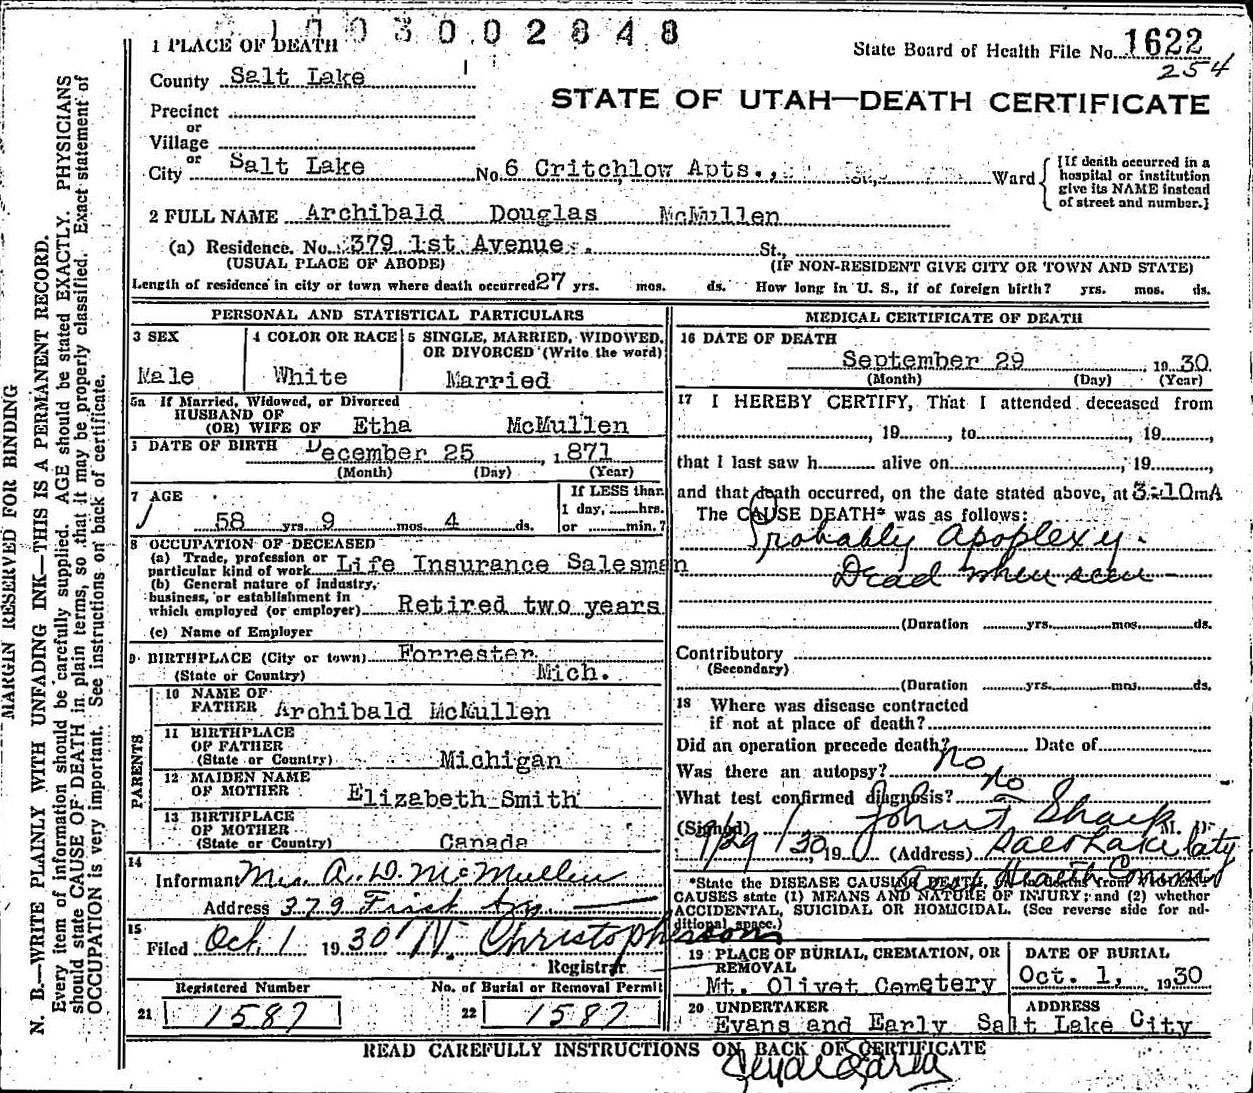 1 7 0 3 0 0 2 8 4 8
1 PLACE OF DEATH
State Board of Health File No. 1622
254
County Salt Lake
STATE OF UTAH—DEATH CERTIFICATE
Precinct
or
Village
or
City Salt Lake No. 6 Critchlow Apts., St., Ward
[If death occurred in a
hospital or institution
give its NAME instead
of street and number.]
2 FULL NAME Archibald Douglas McMullen
(a) Residence. No. 379 1st Avenue St.,
(USUAL PLACE OF ABODE) (IF NON-RESIDENT GIVE CITY OR TOWN AND STATE)
Length of residence in city or town where death occurred 27 yrs. mos. ds. How long in U. S., if of foreign birth? yrs. mos. ds.
PERSONAL AND STATISTICAL PARTICULARS
3 SEX
Male
4 COLOR OR RACE
White
5 SINGLE, MARRIED, WIDOWED,
OR DIVORCED (Write the word)
Married
5a If Married, Widowed, or Divorced
HUSBAND OF
(OR) WIFE OF Etha McMullen
DATE OF BIRTH December 25, 1871
(Month) (Day) (Year)
7 AGE
58 yrs. 9 mos. 4 ds.
If LESS than
1 day, hrs.
or min.?
8 OCCUPATION OF DECEASED
(a) Trade, profession or
particular kind of work Life Insurance Salesman
(b) General nature of industry,
business, or establishment in
which employed (or employer) Retired two years
(c) Name of Employer
9 BIRTHPLACE (City or town) Forrester
(State or Country) Mich.
PARENTS
10 NAME OF
FATHER Archibald McMullen
11 BIRTHPLACE
OF FATHER
(State or Country) Michigan
12 MAIDEN NAME
OF MOTHER Elizabeth Smith
13 BIRTHPLACE
OF MOTHER
(State or Country) Canada
14
Informant Mrs. A. D. McMullen
Address 379 First Ave
15
Filed Oct. 1 1930 N. Christopherson
Registrar
Registered Number No. of Burial or Removal Permit
21 1587 22 1587
MEDICAL CERTIFICATE OF DEATH
16 DATE OF DEATH
September 29, 1930
(Month) (Day) (Year)
17 I HEREBY CERTIFY, That I attended deceased from
, 19 , to , 19 ,
that I last saw h alive on , 19 ,
and that death occurred, on the date stated above, at 3:10 m A
The CAUSE DEATH* was as follows:
Probably apoplexy.
Dead when seen
(Duration yrs. mos. ds.
Contributory
(Secondary)
(Duration yrs. mos. ds.
18 Where was disease contracted
if not at place of death?
Did an operation precede death? No Date of
Was there an autopsy? No
What test confirmed diagnosis?
(Signed) John T Sharp M. D.
9/29/30, 19 (Address) Salt Lake City
Health Commr
*State the DISEASE CAUSING DEATH, or in deaths from VIOLENT
CAUSES state (1) MEANS AND NATURE OF INJURY; and (2) whether
ACCIDENTAL, SUICIDAL OR HOMICIDAL. (See reverse side for ad-
ditional space.)
19 PLACE OF BURIAL, CREMATION, OR
REMOVAL
Mt. Olivet Cemetery
DATE OF BURIAL
Oct. 1, 1930
20 UNDERTAKER ADDRESS
Evans and Early Salt Lake City
READ CAREFULLY INSTRUCTIONS ON BACK OF CERTIFICATE
MARGIN RESERVED FOR BINDING
N. B.—WRITE PLAINLY WITH UNFADING INK—THIS IS A PERMANENT RECORD.
Every item of information should be carefully supplied. AGE should be stated EXACTLY. PHYSICIANS
should state CAUSE OF DEATH in plain terms, so that it may be properly classified. Exact statement of
OCCUPATION is very important. See instructions on back of certificate.